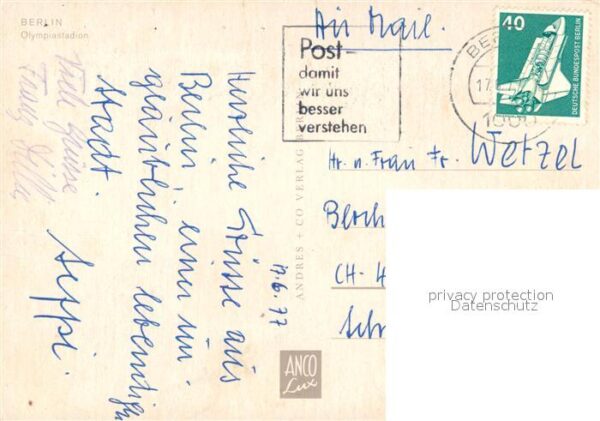 BERLIN
Olympiastadion
Air Mail.
Post-
damit
wir uns
besser
verstehen
BE
17.
1000
40
DEUTSCHE BUNDESPOST BERLIN
Hr. u. Frau Fr. Wetzel
CH - 4
17.6.77
Herzliche Grüsse aus
Berlin einer un-
glaublichen lebendigen
Stadt.
Seppi.
Viele Grüsse
ANDRES + CO VERLAG BERLIN
ANCO
Lux
privacy protection
Datenschutz